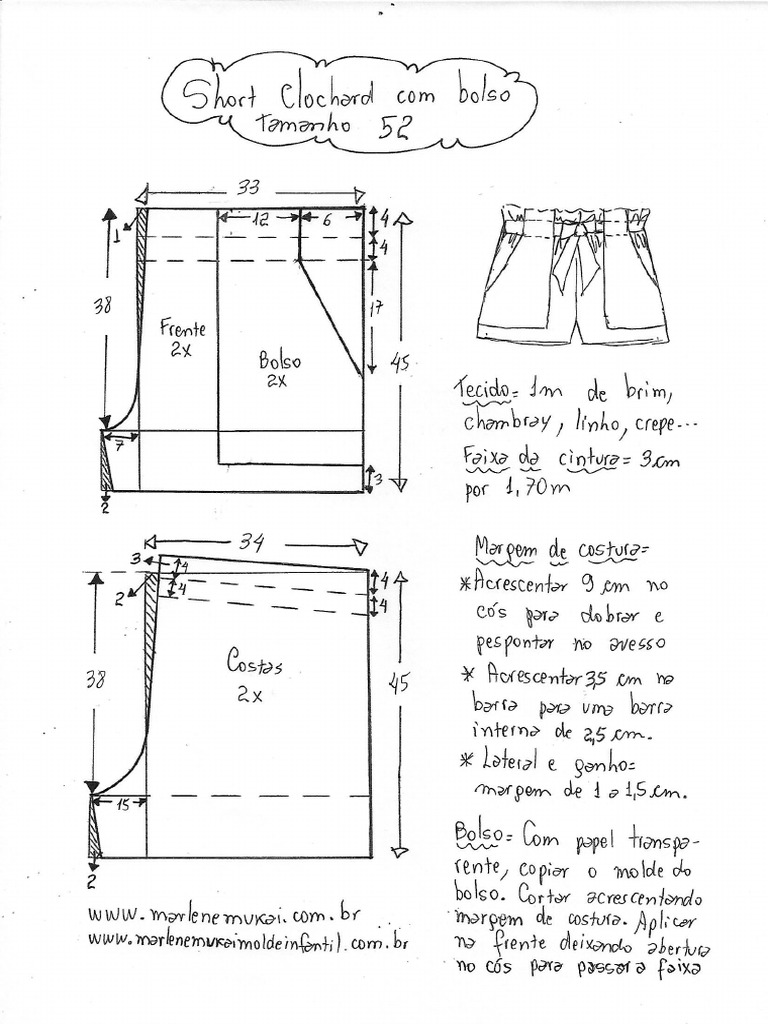 Short Clochard com bolso
tamanho 52
33
12
6
4
4
1
38
17
Frente
2x
Bolso
2x
45
7
3
2
Tecido= 1m de brim,
chambray, linho, crepe...
Faixa da cintura= 3cm
por 1,70m
34
3
4
4
4
4
2
38
45
Costas
2x
15
2
Margem de costura=
*Acrescentar 9 cm no
cós para dobrar e
pespontar no avesso
* Acrescentar 3,5 cm na
barra para uma barra
interna de 2,5 cm.
* Lateral e ganho=
margem de 1 a 1,5 cm.
Bolso= Com papel transpa-
rente, copiar o molde do
bolso. Cortar acrescentando
margem de costura. Aplicar
na frente deixando abertura
no cós para passar a faixa
www.marlenemukai.com.br
www.marlenemukaimoldeinfantil.com.br